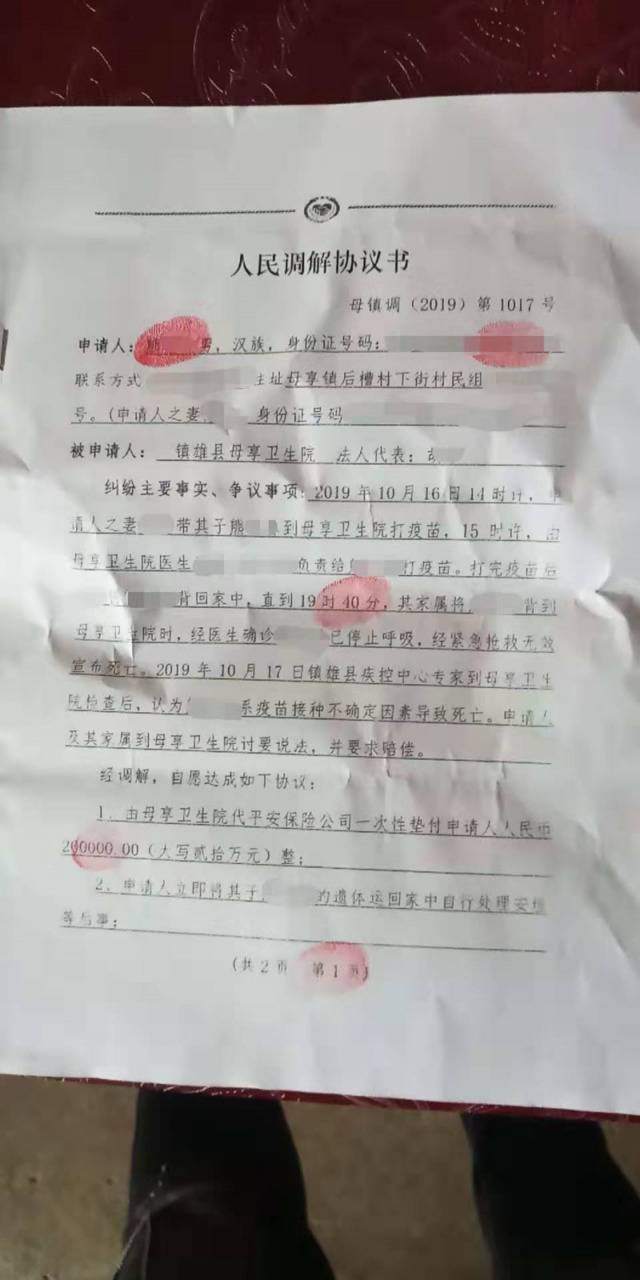 人民调解协议书
母镇调（2019）第1017号
申请人： 男，汉族，身份证号码：
联系方式 主址母享镇后槽村下街村民组
号。(申请人之妻 身份证号码
被申请人： 镇雄县母享卫生院 法人代表：
纠纷主要事实、争议事项：2019年10月16日14时许，申
请人之妻 带其子熊 到母享卫生院打疫苗，15时许，由
母享卫生院医生 负责给 打疫苗。打完疫苗后
背回家中，直到19时40分，其家属将 背到
母享卫生院时，经医生确诊 已停止呼吸，经紧急抢救无效
宣布死亡。2019年10月17日镇雄县疾控中心专家到母享卫生
院检查后，认为 系疫苗接种不确定因素导致死亡。申请人
及其家属到母享卫生院讨要说法，并要求赔偿。
经调解，自愿达成如下协议：
1、由母享卫生院代平安保险公司一次性垫付申请人人民币
200000.00（大写贰拾万元）整；
2、申请人立即将其子 的遗体运回家中自行处理安埋
等后事；
（共2页 第1页）